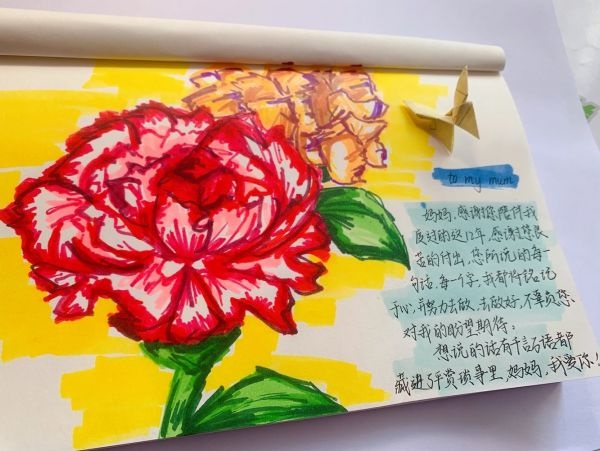 to my mum
妈妈,感谢您陪伴我
度过的这12年,感谢您
苦的付出,您所说的每
句话,每个字,我都将铭记
于心,并努力去做,去做好,不辜负您
对我的盼望期待;
想说的话有千言万语都
藏进 里,妈妈,我爱你!